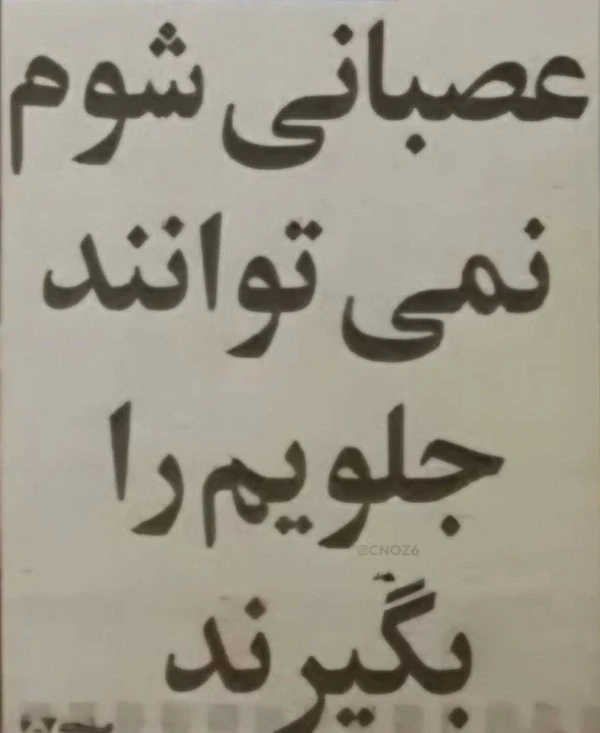 عصبانی شوم
نمی توانند
جلویم را
@CNOZ6
بگیرند